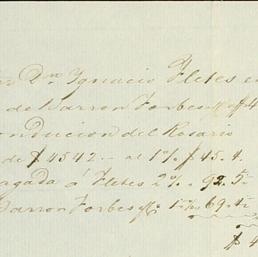 Dn Ignacio Fletes en
de Barron Forbes
conduccion del Rosario
de $4542 -- al 1% $45.4.
pagada á Fletes 2%. 92.5
Barron Forbes 1½% 69.4
$4